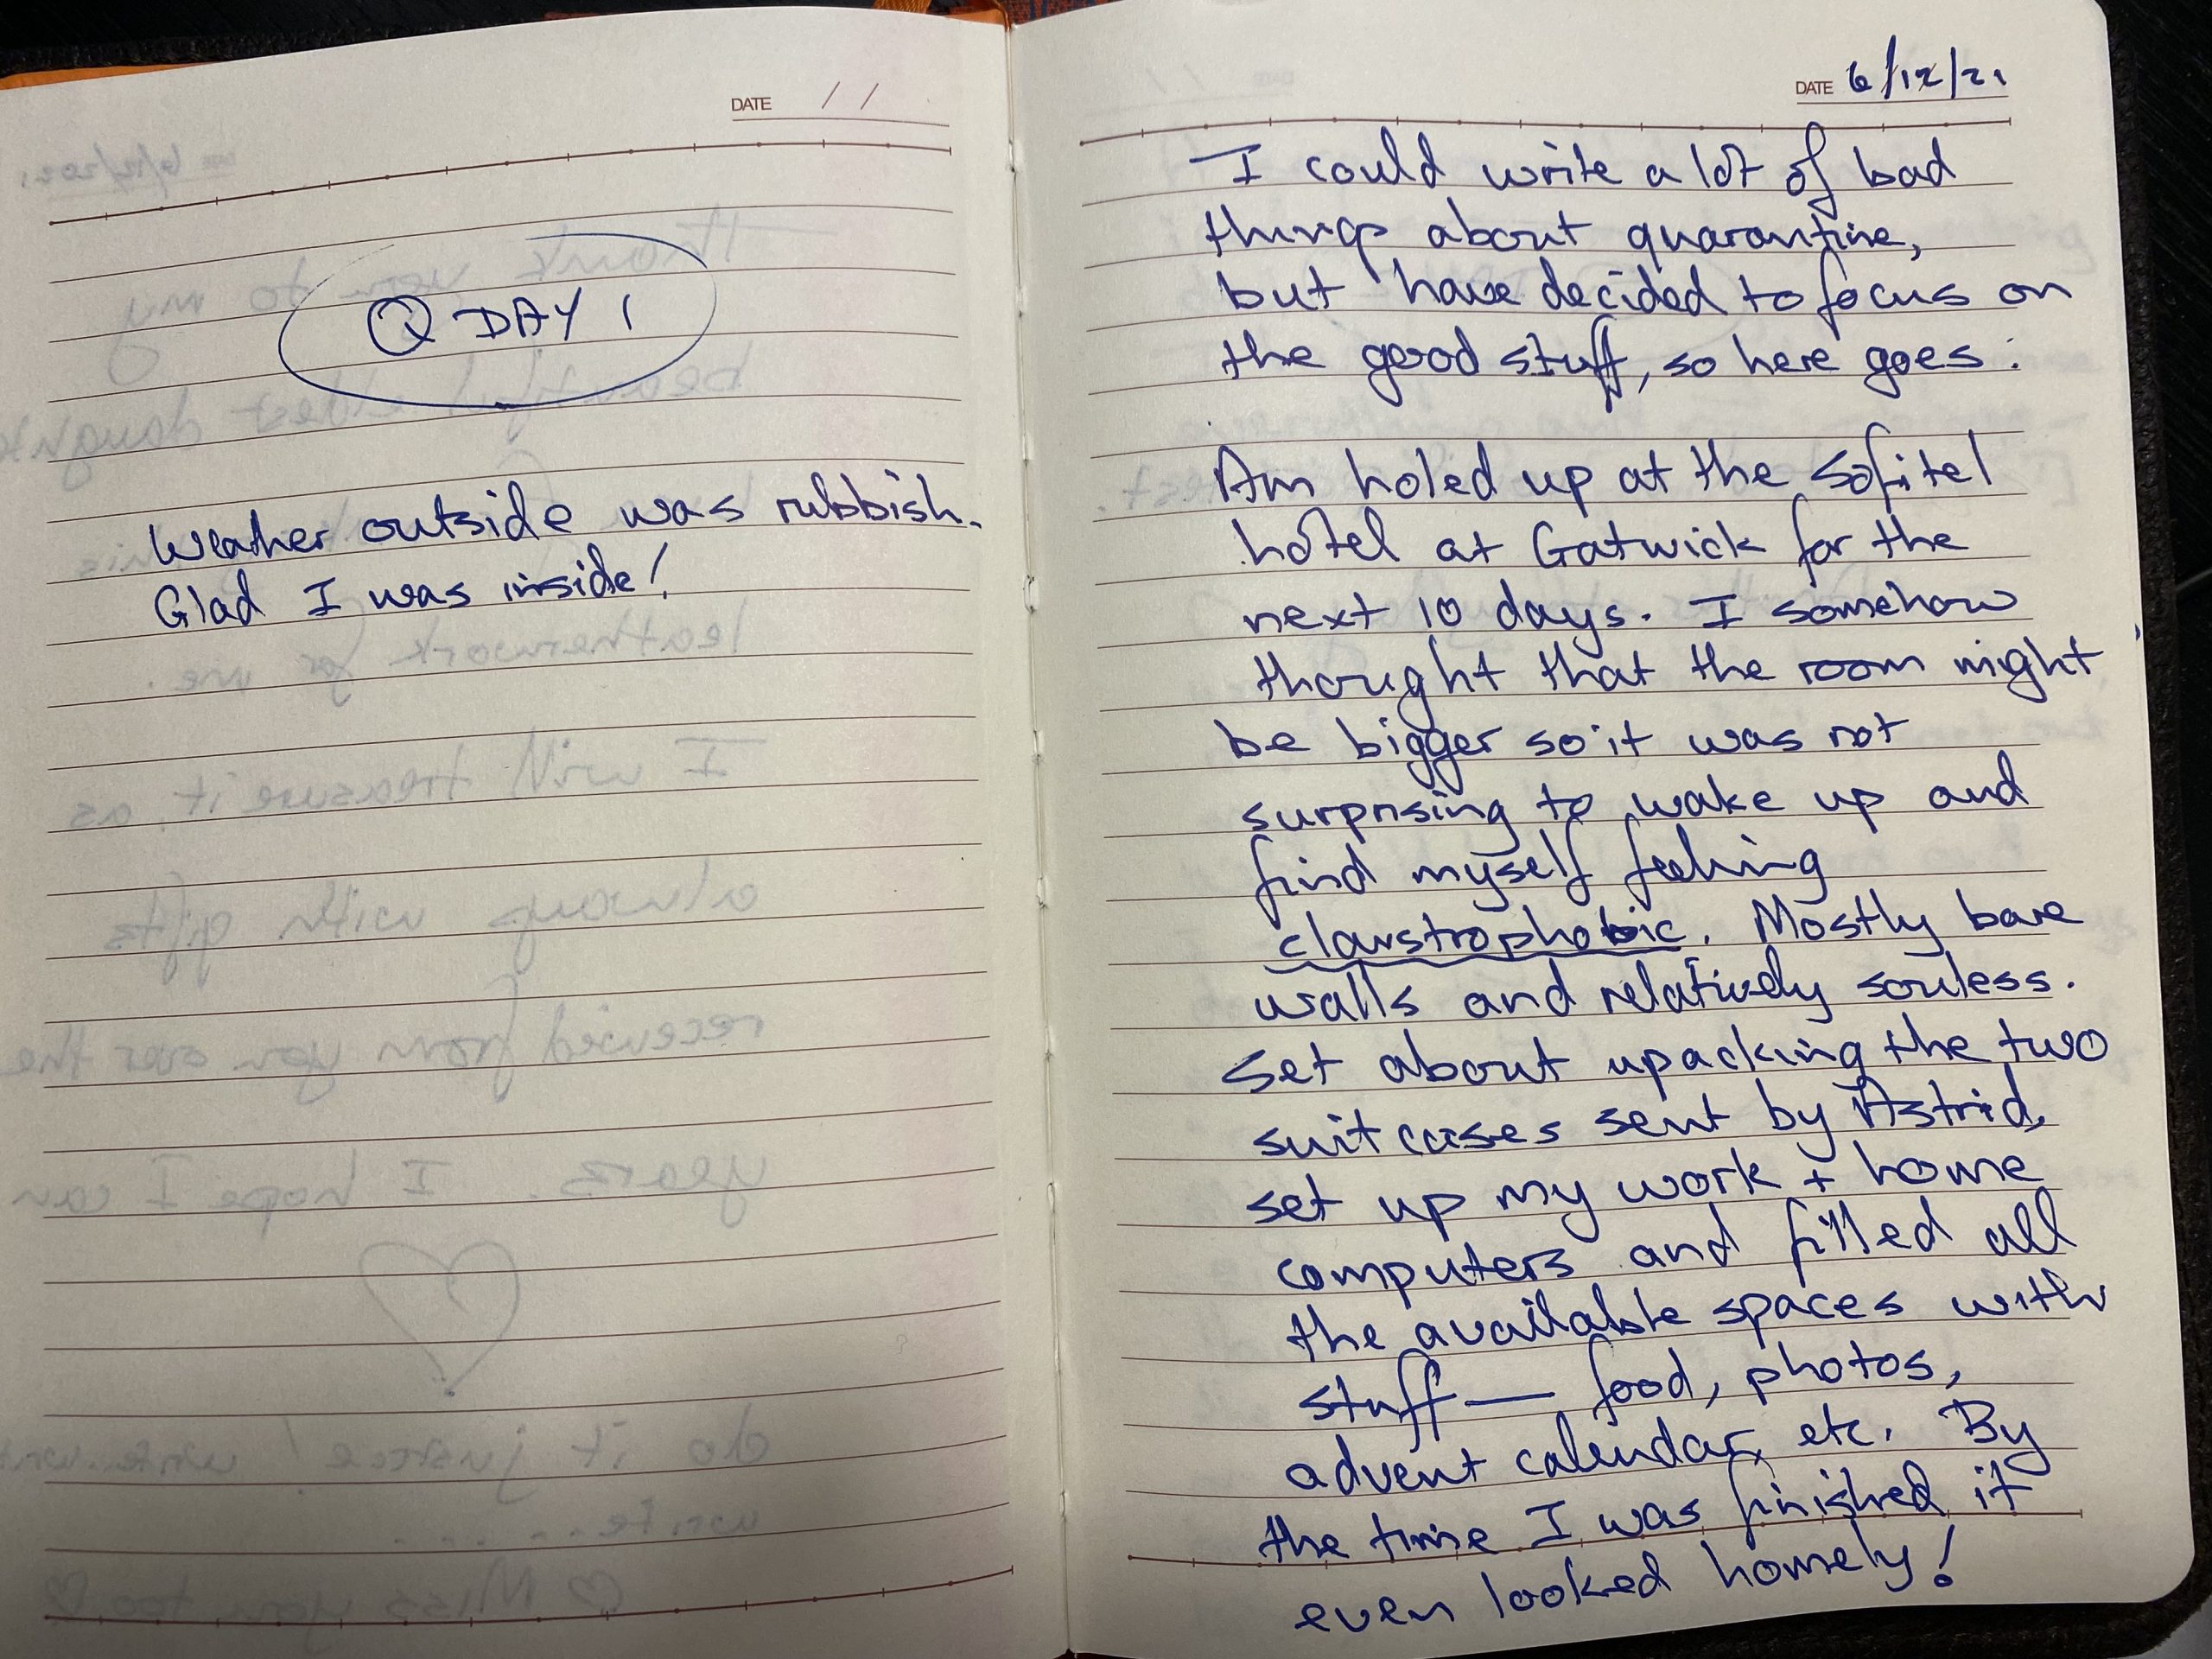 DATE / /
Q DAY 1
Weather outside was rubbish.
Glad I was inside!
DATE 6/12/21
I could write a lot of bad
things about quarantine,
but have decided to focus on
the good stuff, so here goes:
Am holed up at the Sofitel
hotel at Gatwick for the
next 10 days. I somehow
thought that the room might
be bigger so it was not
surprising to wake up and
find myself feeling
claustrophobic. Mostly bare
walls and relatively souless.
Set about upacking the two
suitcases sent by Astrid,
set up my work + home
computers and filled all
the available spaces with
stuff — food, photos,
advent calendar, etc. By
the time I was finished it
even looked homely!